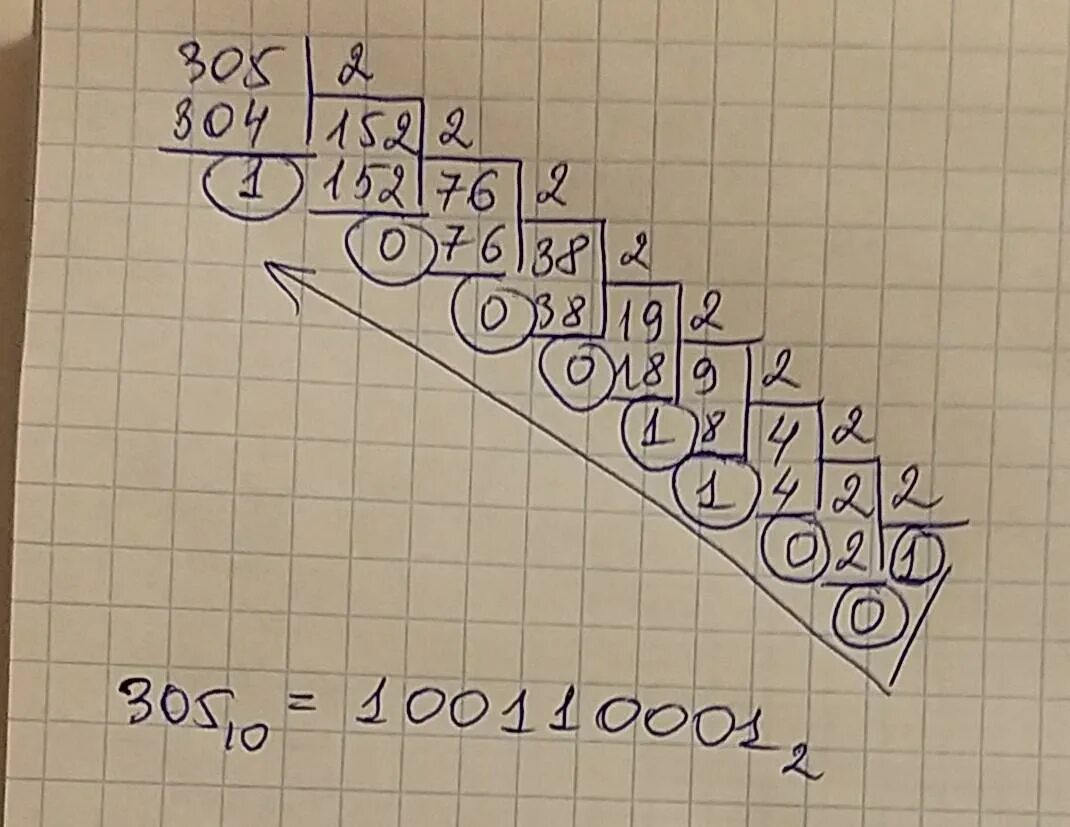 305 2
304 152 2
1 152 76 2
0 76 38 2
0 38 19 2
0 18 9 2
1 8 4 2
1 4 2 2
0 2 1
0
305₁₀ = 100110001₂